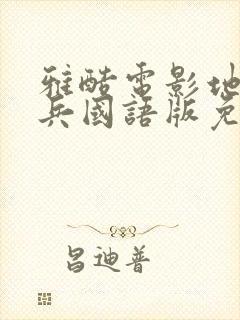 雅酷電影地
兵國語版免
昌迪普